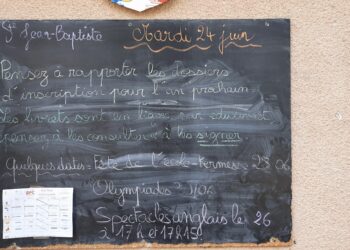 St Jean-Baptiste
Mardi 24 juin
Pensez à rapporter les dossiers
d'inscription pour l'an prochain
les livrets sont en ligne sur educonnet
pensez à les consulter et à les signer
Quelques dates = Fête de l'école-Kermes = 28 06
Olympiades
Spectacles anglais le 26
à 17h et 17H15